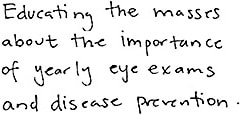 Educating the masses
about the importance
of yearly eye exams
and disease prevention.